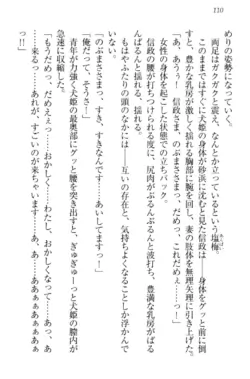 110
めりの姿勢になっていく。
両足はガクガクと震え、なんとか立っている塩梅。
あんばい
このままではすぐに犬姫の身体が砂浜に沈むと見た信政は、身体をグッと前に倒
すと、豊かな乳房が激しく揺れる胸部に腕を回し、妻の肢体を無理矢理に引き上げた。
「ああっ、のぶまささまっ、だめっ、これだめっ!」
女性の身体を起こした状態での立ちバック。
信政の腰が打ちつけられるたびに、尻肉がぶるんぶるんと波打ち、豊満な乳房がば
んばるんと揺れる。
もはやふたりの頭のなかには、互いの存在と、気持ちよくなることしか浮かんで
いなかった。
「のぶまささまっ、すき、すきなんですっ……あいしてますっ……っ!」
「俺だって、そうさっ!」
青年が力強く犬姫の最奥部にグッと腰を突き出すと、ぎゅぎゅーっと犬姫の膣内が
急速に収縮した。
「もうだめっ、だめえぇっ……おかしくっ……わたし、おかしくなって……っ
……来るっ……あれが……すごいのが来ちゃいますっ……あ、あっ、ああぁぁぁぁぁ
っ!!」